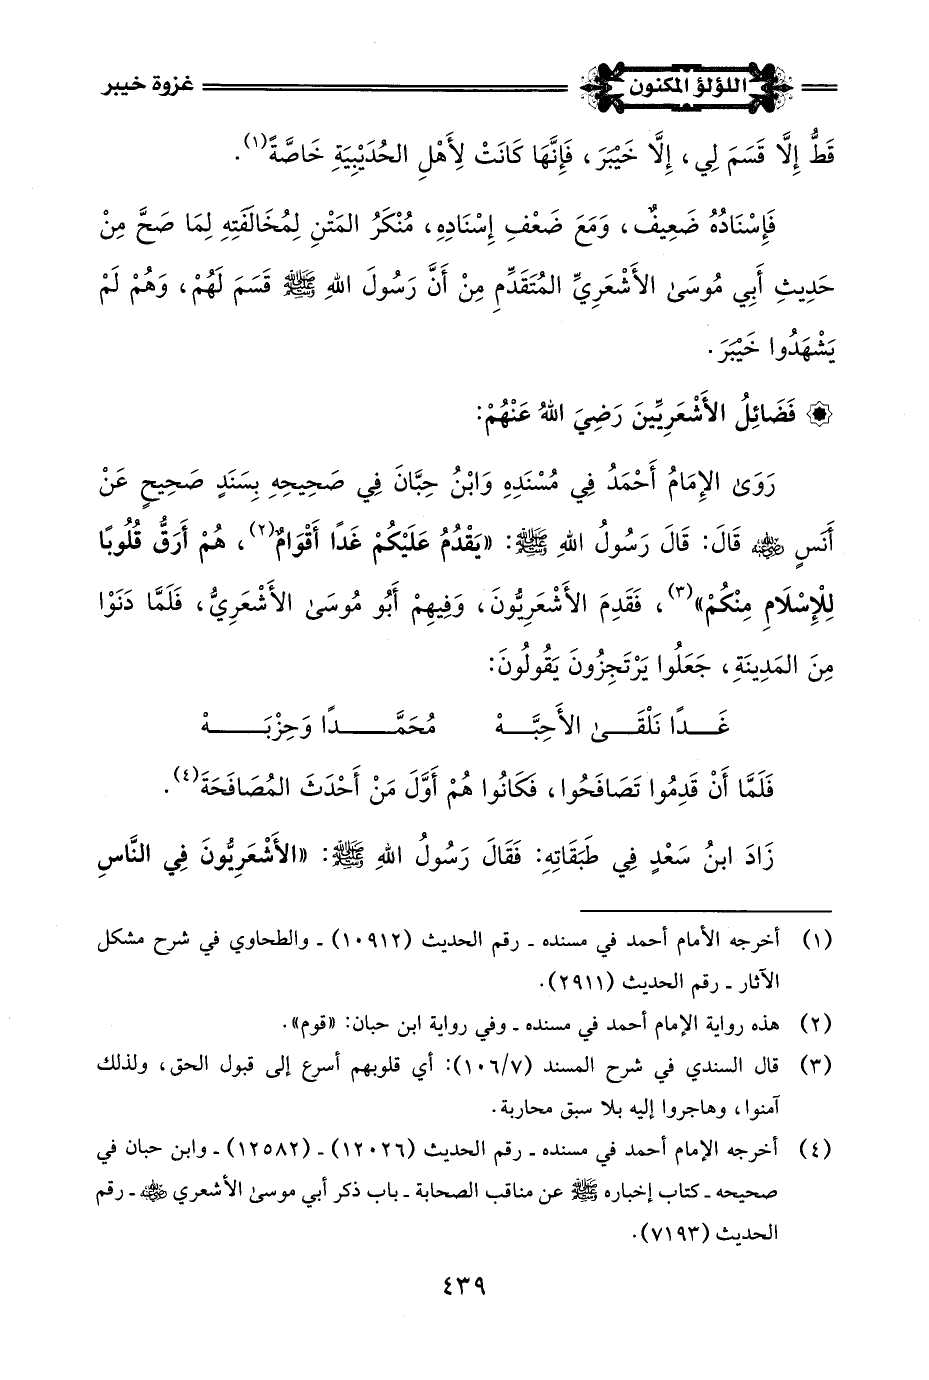 اللؤلؤ المكنون غزوة خيبر
قَطُّ إِلَّا قَسَمَ لِي، إِلَّا خَيْبَرَ، فَإِنَّهَا كَانَتْ لِأَهْلِ الحُدَيْبِيَةِ خَاصَّةً(١).
فَإِسْنَادُهُ ضَعِيفٌ، وَمَعَ ضَعْفِ إِسْنَادِهِ، مُنْكَرُ المَتْنِ لِمُخَالَفَتِهِ لِمَا صَحَّ مِنْ
حَدِيثِ أَبِي مُوسَىٰ الأَشْعَرِيِّ المُتَقَدِّمِ مِنْ أَنَّ رَسُولَ اللهِ ﷺ قَسَمَ لَهُمْ، وَهُمْ لَمْ
يَشْهَدُوا خَيْبَرَ.
فَضَائِلُ الأَشْعَرِيِّينَ رَضِيَ اللهُ عَنْهُمْ:
رَوَىٰ الإِمَامُ أَحْمَدُ فِي مُسْنَدِهِ وَابْنُ حِبَّانَ فِي صَحِيحِهِ بِسَنَدٍ صَحِيحٍ عَنْ
أَنَسٍ رضي الله عنه قَالَ: قَالَ رَسُولُ اللهِ ﷺ: «يَقْدُمُ عَلَيْكُمْ غَدًا أَقْوَامٌ(٢)، هُمْ أَرَقُّ قُلُوبًا
لِلْإِسْلَامِ مِنْكُمْ»(٣)، فَقَدِمَ الأَشْعَرِيُّونَ، وَفِيهِمْ أَبُو مُوسَىٰ الأَشْعَرِيُّ، فَلَمَّا دَنَوْا
مِنَ المَدِينَةِ، جَعَلُوا يَرْتَجِزُونَ يَقُولُونَ:
غَــدًا نَلْقَــىٰ الأَحِبَّــهْ مُحَمَّــــدًا وَحِزْبَــــهْ
فَلَمَّا أَنْ قَدِمُوا تَصَافَحُوا، فَكَانُوا هُمْ أَوَّلَ مَنْ أَحْدَثَ المُصَافَحَةَ(٤).
زَادَ ابنُ سَعْدٍ فِي طَبَقَاتِهِ: فَقَالَ رَسُولُ اللهِ ﷺ: «الأَشْعَرِيُّونَ فِي النَّاسِ
(١) أخرجه الأمام أحمد في مسنده ـ رقم الحديث (١٠٩١٢) ـ والطحاوي في شرح مشكل
الآثار ـ رقم الحديث (٢٩١١).
(٢) هذه رواية الإمام أحمد في مسنده ـ وفي رواية ابن حبان: «قوم».
(٣) قال السندي في شرح المسند (١٠٦/٧): أي قلوبهم أسرع إلى قبول الحق، ولذلك
آمنوا، وهاجروا إليه بلا سبق محاربة.
(٤) أخرجه الإمام أحمد في مسنده ـ رقم الحديث (١٢٠٢٦) ـ (١٢٥٨٢) ـ وابن حبان في
صحيحه ـ كتاب إخباره ﷺ عن مناقب الصحابة ـ باب ذكر أبي موسىٰ الأشعري رضي الله عنه ـ رقم
الحديث (٧١٩٣).
٤٣٩